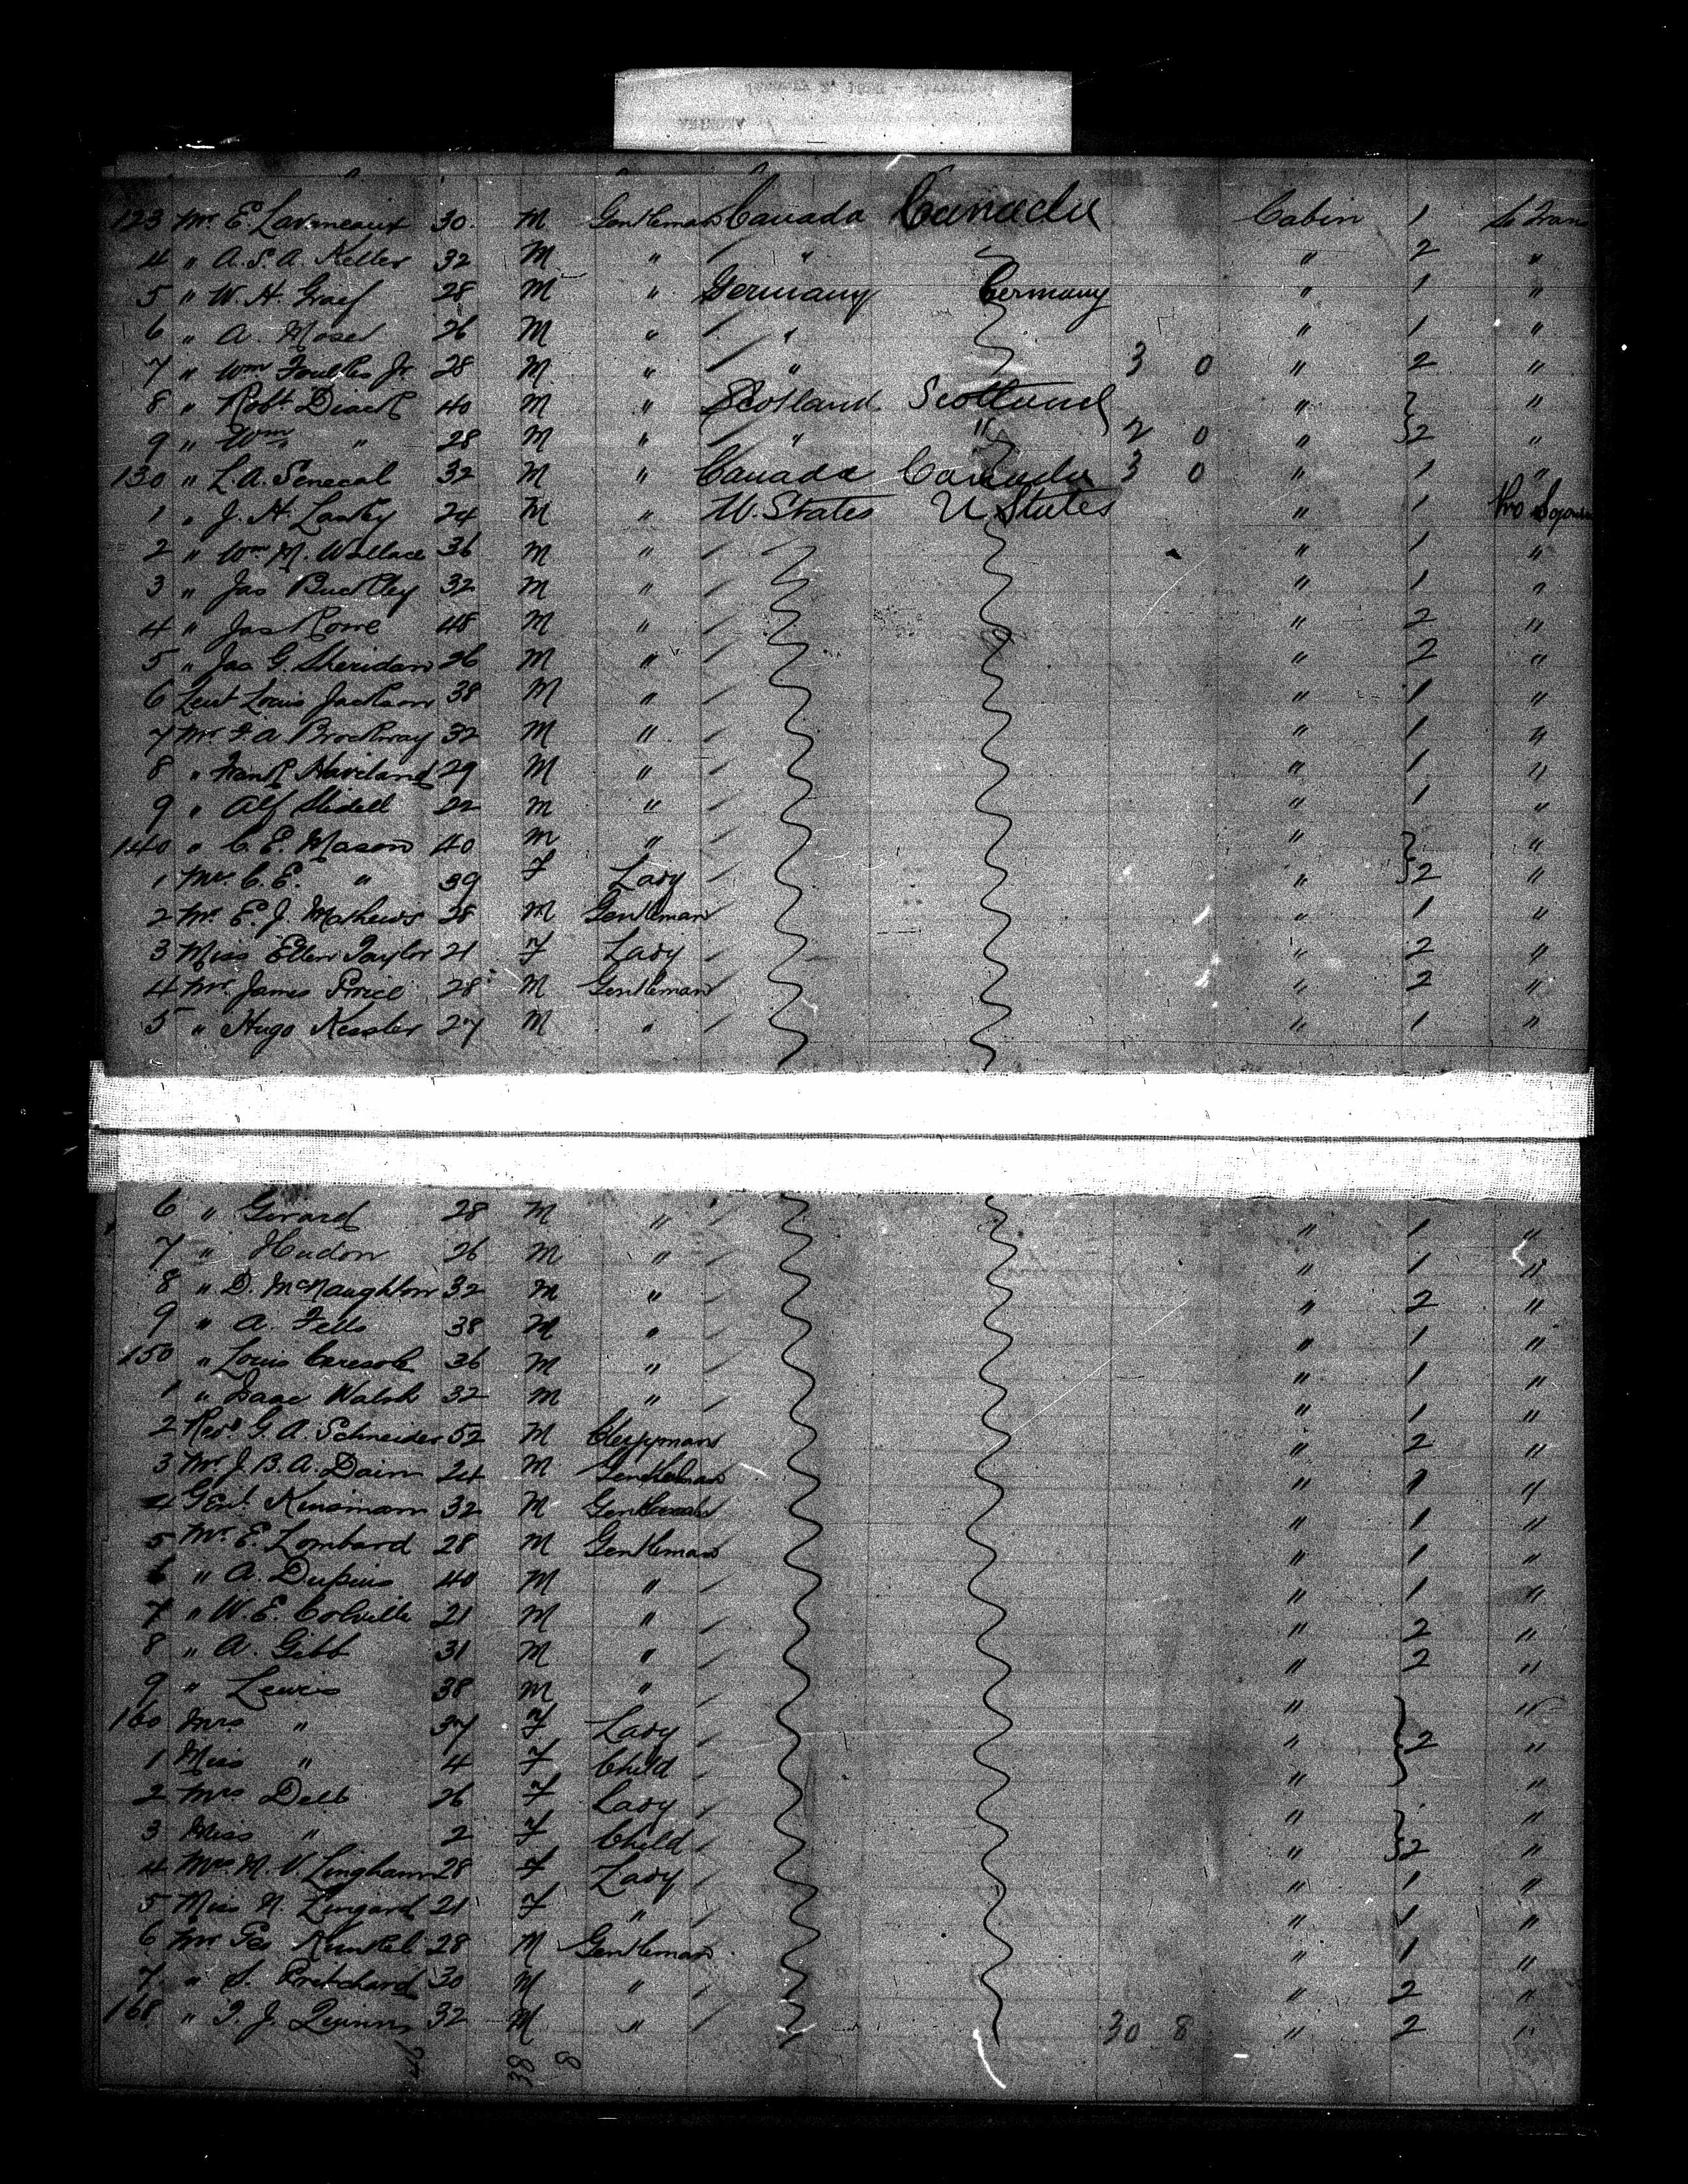 123 Mr. E. Lavineaux 30. M Gentleman Canada Canada Cabin 1
4 " A. S. A. Keller 32 M " " " 2 "
5 " W. H. Graef 28 M " Germany Germany " 1 "
6 " A. Moser 26 M " " " 1 "
7 " Wm Jr. 28 M " " 3 0 " 2 "
8 " Robt. Diack 40 M " Scotland Scotland " "
9 " Wm " 28 M " " " 2 0 " 2 "
130 " L. A. Senecal 32 M " Canada Canada 3 0 " 1 "
1 " J. H. 24 M " U. States U States " 1 Pro
2 " Wm M. Wallace 36 M " " 1 "
3 " Jas Buckley 32 M " " 1 "
4 " Jas Rowe 48 M " " 2 "
5 " Jas G. Sheridan 26 M " " 2 "
6 Lieut Louis Jackson 38 M " " 1 "
7 Mr. F. A. Brockway 32 M " " 1 "
8 " Frank Haviland 29 M " " 1 "
9 " Alf Slidell 22 M " " 1 "
140 " C. E. Mason 40 M " " "
1 Mrs. C. E. " 39 F Lady " 2 "
2 Mr. E. J. Mathews 28 M Gentleman " 1 "
3 Miss Ellen Taylor 21 F Lady " 2 "
4 Mr. James Price 28 M Gentleman " 2 "
5 " Hugo Kessler 27 M " " 1 "
6 " Girard 28 M " " 1 "
7 " Hudon 26 M " " 1 "
8 " D. McNaughton 32 M " " 2 "
9 " A. Fells 38 M " " 1 "
150 " Louis 36 M " " 1 "
1 " Isaac Walsh 32 M " " 1 "
2 Revd G. A. Schneider 52 M Clergyman " 2 "
3 Mr. J. B. A. Dain 24 M Gentleman " 1 "
4 Genl. Kinsman 32 M Gentleman " 1 "
5 Mr. E. Lombard 28 M Gentleman " 1 "
6 " A. Dupuis 40 M " " 1 "
7 " W. E. Colville 21 M " " 2 "
8 " A. Gibb 31 M " " 2 "
9 " Lewis 38 M " " "
160 Mrs " 37 F Lady " 2 "
1 Miss " 4 F Child " "
2 Mrs Delb 26 F Lady " "
3 Miss " 2 F Child " 2 "
4 Mrs. N. V. Lingham 28 F Lady " 1 "
5 Miss N. Lingard 21 F " " 1 "
6 Mr Geo Kunkel 28 M Gentleman " 1 "
7 " S. Pritchard 30 M " " 2 "
168 " T. J. Quinn 32 M " 30 8 " 2 "
38 8